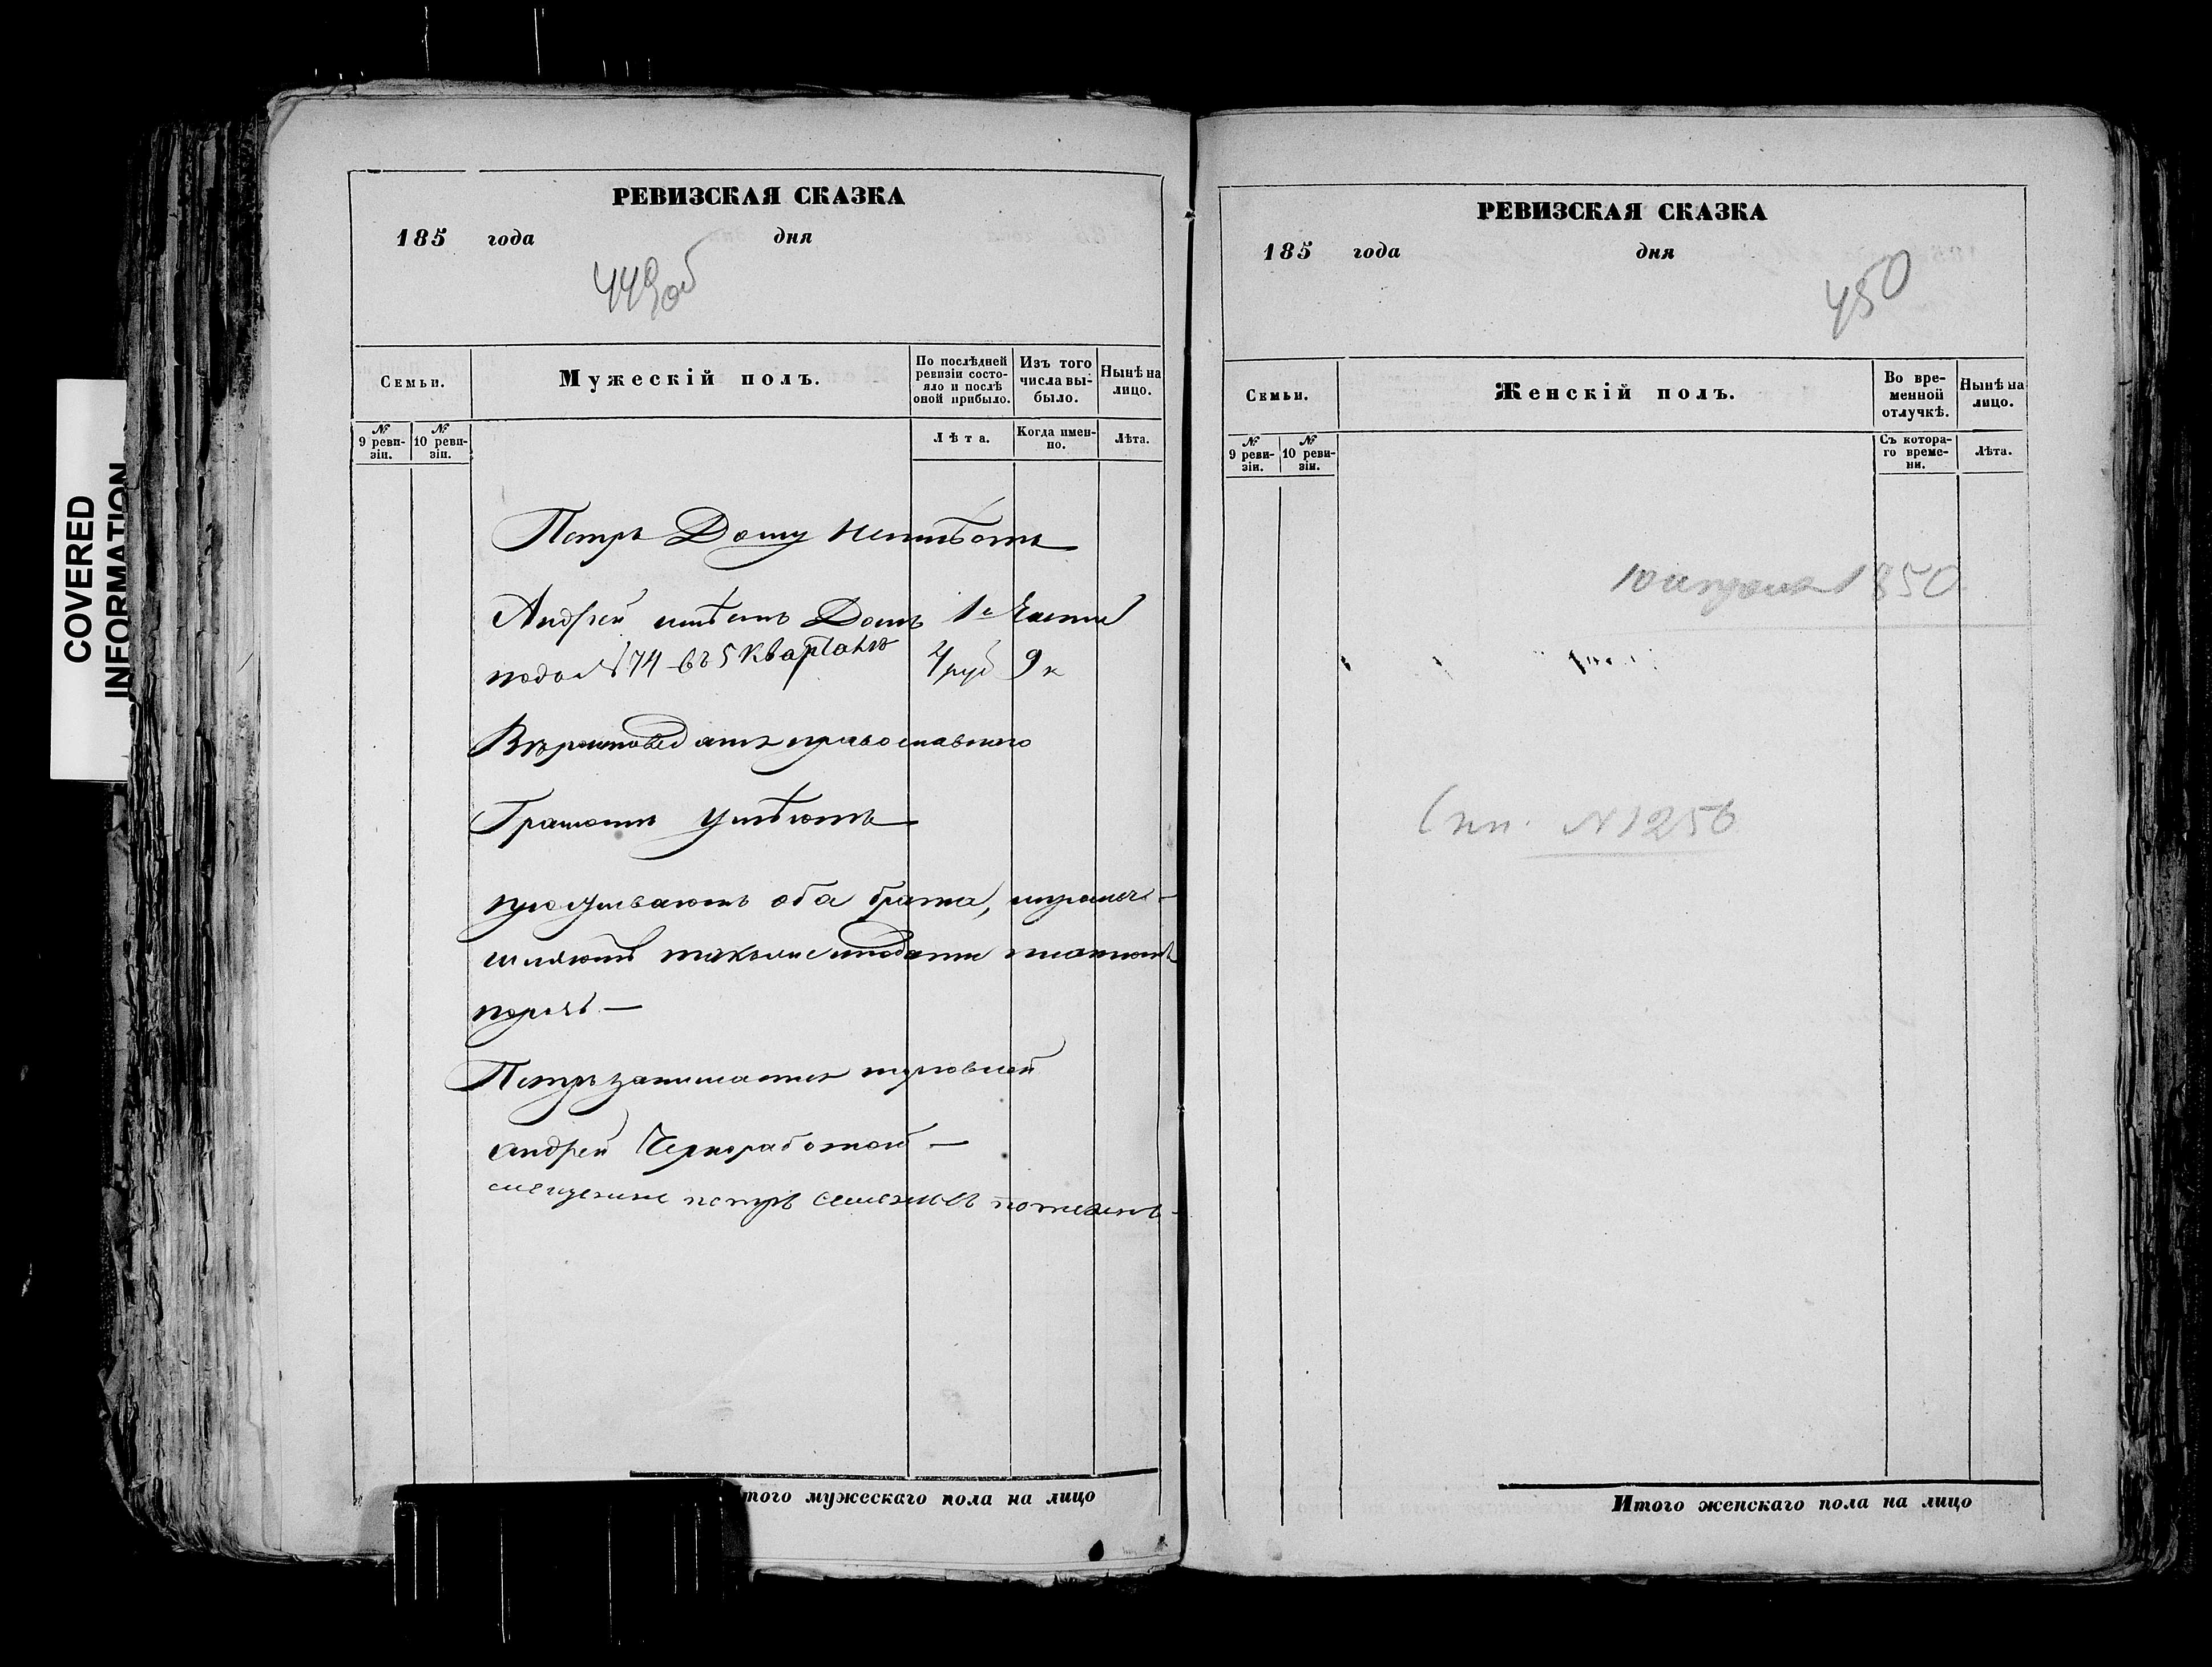 COVERED
INFORMATION
РЕВИЗСКАЯ СКАЗКА
185 года дня
449об
Семьи.
Мужескій полъ.
По послѣдней ревизіи состояло и послѣ оной прибыло.
Изъ того числа выбыло.
Нынѣ на лицо.
№ 9 ревизіи.
№ 10 ревизіи.
Лѣта.
Когда именно.
Лѣта.
Петръ Дому неимѣетъ
Андрей имѣетъ Домъ 1й Части
подъ № 74 въ 5 кварталѣ 4 руб 9 к
Вѣроисповеданія православного
Грамотѣ умѣютъ
оба брата,
также и подати платютъ
Петръ занимается торговлей
Андрей Чернработой —
мещенинъ петръ семеновъ
Итого мужескаго пола на лицо
РЕВИЗСКАЯ СКАЗКА
185 года дня
450
Семьи.
Женскій полъ.
Во временной отлучкѣ.
Нынѣ на лицо.
№ 9 ревизіи.
№ 10 ревизіи.
Съ котораго времени.
Лѣта.
10 апреля 1850
N 1256
Итого женскаго пола на лицо